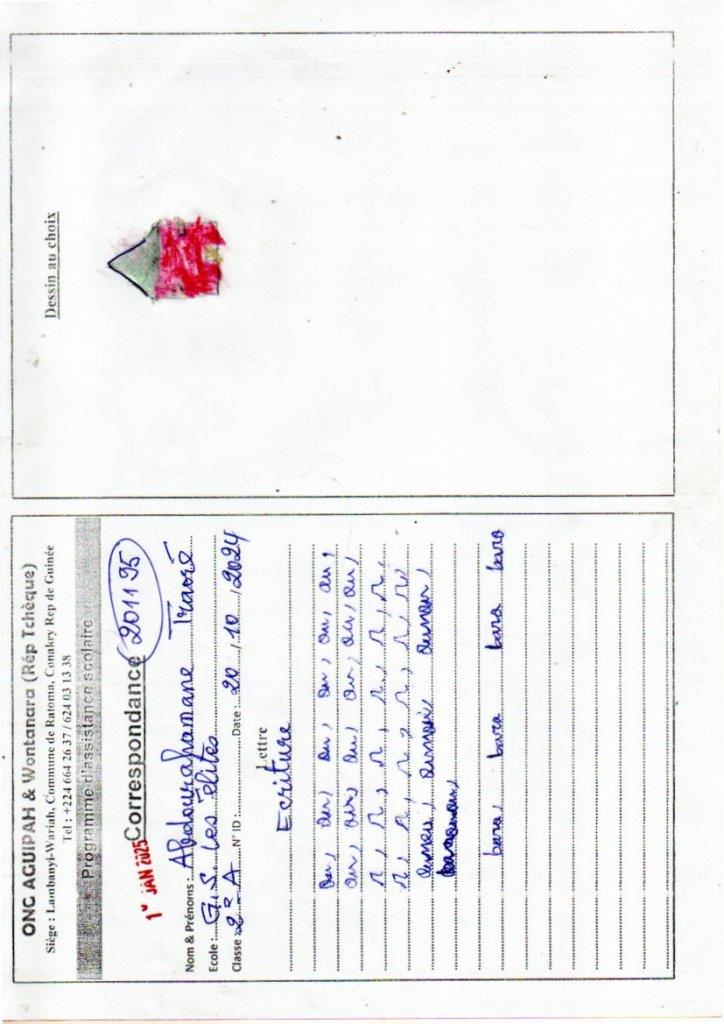 ONG AGUIPAH & Wontanara (Rép Tchèque)
Siège : Lambanyi-Wariah, Commune de Ratoma, Conakry Rep de Guinée
Tel : +224 664 26 37 / 624 03 13 38
Programme d'assistance scolaire
1 JAN 2025 Correspondance 201195
Nom & Prénoms : Abdourahamane Traoré
Ecole : G.S. Les Élites
Classe 2e A N° ID : Date : 20 / 10 / 2024
Lettre
Ecriture
ou, ou, ou, ou, ou, ou,
ou, ou, ou, ou, ou, ou,
n, n, n, n, n, n,
n, n, n, n, n, n
bara, bara bara bara
Dessin au choix